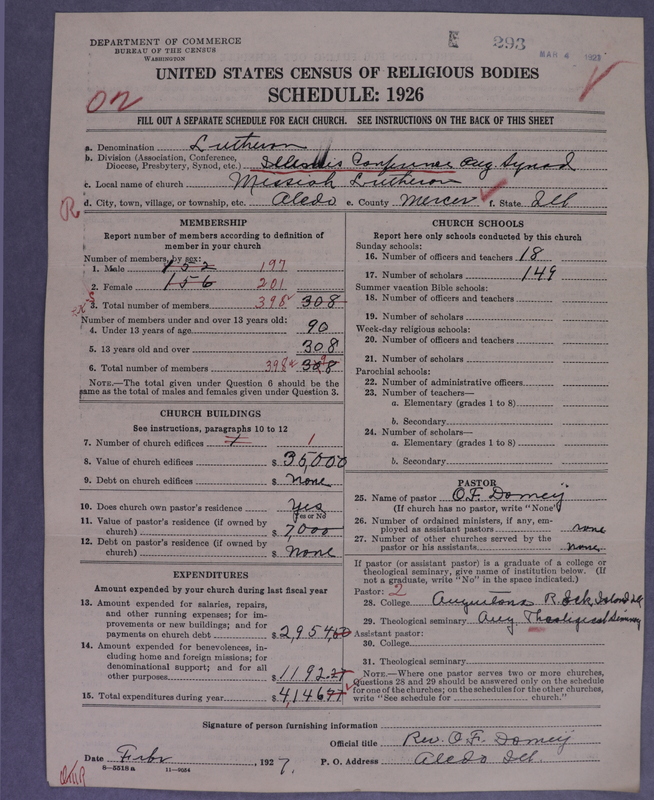 DEPARTMENT OF COMMERCE
BUREAU OF THE CENSUS
WASHINGTON
E 293
MAR 4 1927
UNITED STATES CENSUS OF RELIGIOUS BODIES
SCHEDULE: 1926
FILL OUT A SEPARATE SCHEDULE FOR EACH CHURCH. SEE INSTRUCTIONS ON THE BACK OF THIS SHEET
a. Denomination Lutheran
b. Division (Association, Conference, Diocese, Presbytery, Synod, etc.) Illinois Conference Aug. Synod
c. Local name of church Messiah Lutheran
d. City, town, village, or township, etc. Aledo e. County Mercer f. State Ill
R
MEMBERSHIP
Report number of members according to definition of member in your church
Number of members, by sex:
1. Male 152 197
2. Female 156 201
3. Total number of members 398 308
Number of members under and over 13 years old:
4. Under 13 years of age 90
5. 13 years old and over 308
6. Total number of members 398 308
NOTE.—The total given under Question 6 should be the same as the total of males and females given under Question 3.
CHURCH BUILDINGS
See instructions, paragraphs 10 to 12
7. Number of church edifices 1 1
8. Value of church edifices $ 35,000
9. Debt on church edifices $ None
10. Does church own pastor's residence Yes
Yes or No
11. Value of pastor's residence (if owned by church) $ 7,000
12. Debt on pastor's residence (if owned by church) $ None
EXPENDITURES
Amount expended by your church during last fiscal year
13. Amount expended for salaries, repairs, and other running expenses; for improvements or new buildings; and for payments on church debt $ 2,954.50
14. Amount expended for benevolences, including home and foreign missions; for denominational support; and for all other purposes $ 1192.27
15. Total expenditures during year $ 4,146.77
CHURCH SCHOOLS
Report here only schools conducted by this church
Sunday schools:
16. Number of officers and teachers 18
17. Number of scholars 149
Summer vacation Bible schools:
18. Number of officers and teachers
19. Number of scholars
Week-day religious schools:
20. Number of officers and teachers
21. Number of scholars
Parochial schools:
22. Number of administrative officers
23. Number of teachers—
a. Elementary (grades 1 to 8)
b. Secondary
24. Number of scholars—
a. Elementary (grades 1 to 8)
b. Secondary
PASTOR
25. Name of pastor O. F. Domeij
(If church has no pastor, write "None")
26. Number of ordained ministers, if any, employed as assistant pastors none
27. Number of other churches served by the pastor or his assistants none
If pastor (or assistant pastor) is a graduate of a college or theological seminary, give name of institution below. (If not a graduate, write "No" in the space indicated.)
Pastor: 2
28. College Augustana Rock Island Ill
29. Theological seminary Aug. Theological Seminary
Assistant pastor:
30. College
31. Theological seminary
NOTE.—Where one pastor serves two or more churches, Questions 28 and 29 should be answered only on the schedule for one of the churches; on the schedules for the other churches, write "See schedule for church."
Signature of person furnishing information
Official title Rev. O. F. Domeij
Date Febr , 1927. P. O. Address Aledo Ill.
8—5518 a 11—9034